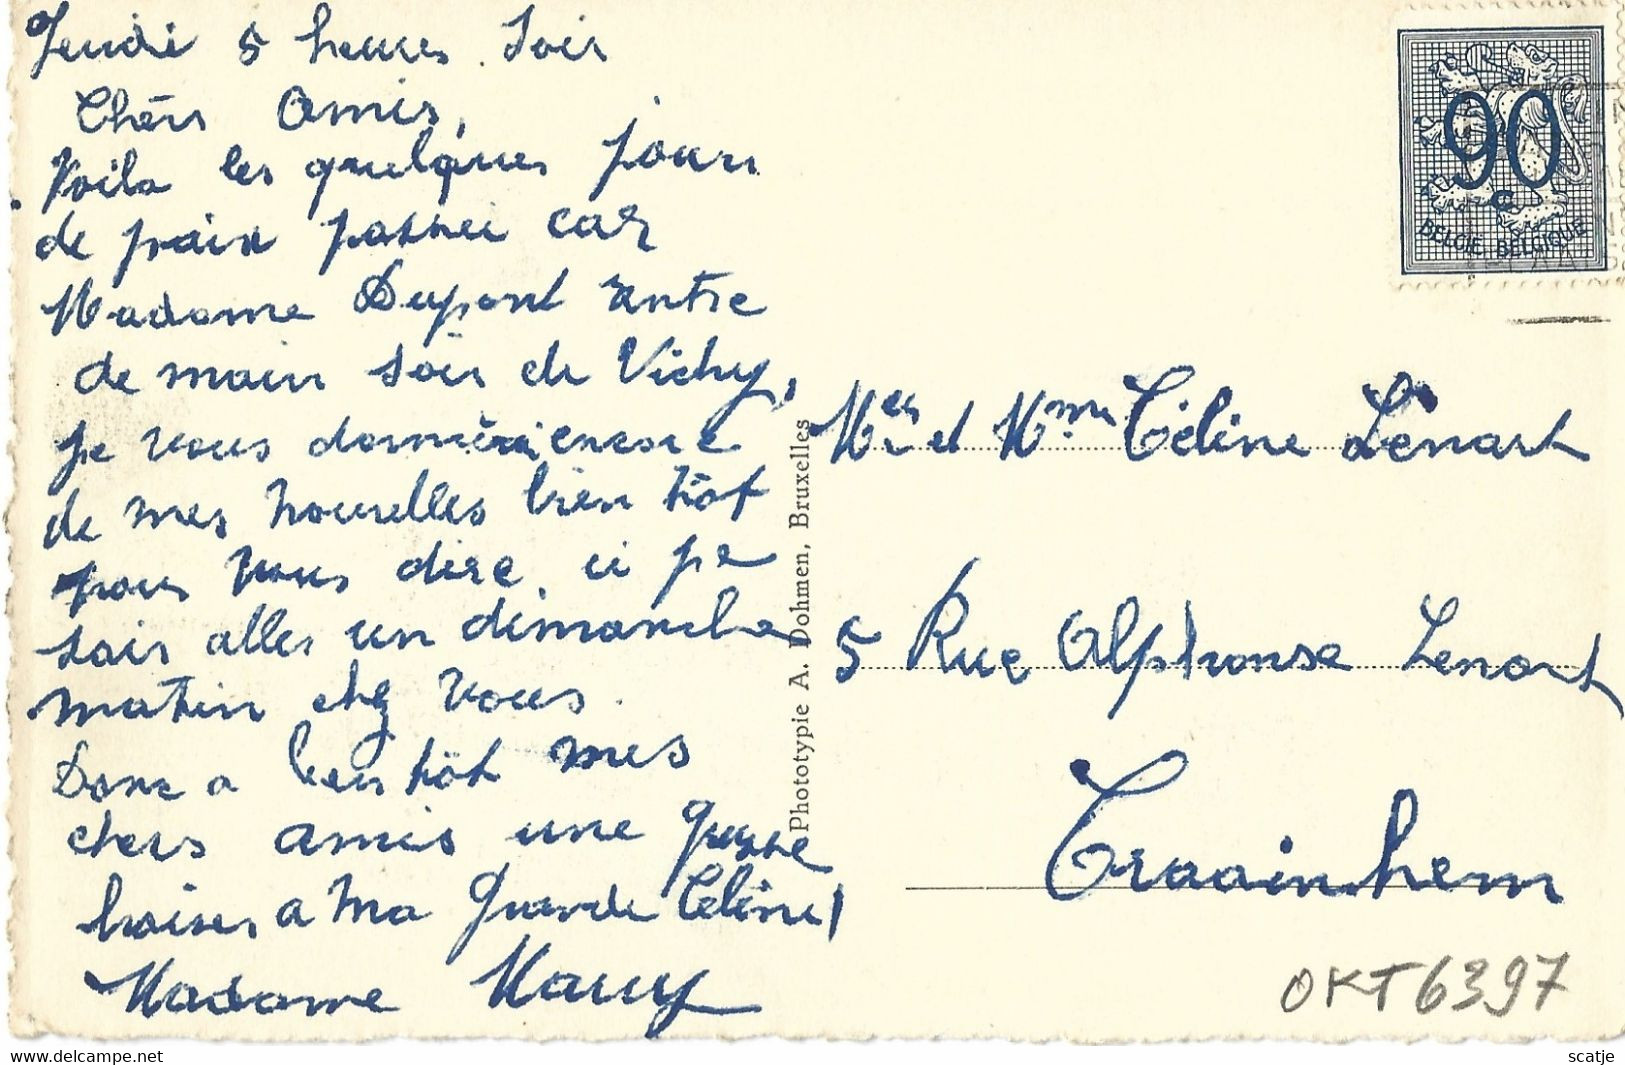 Jeudi 5 heures Soir
Chèrs Amis,
Voila les quelques jours
de paix passée car
Madame Dupont rentre
de main soir de Vichy,
je vous donnèrai encore
de mes nouvelles bien tôt
pour vous dire si je
sais aller un dimanche
matin chez vous.
Donc a bien tôt mes
chers amis une grosse
baises a Ma Grande Céline
Madame Maury
Phototypie A. Dohmen, Bruxelles
90
c
BELGIË BELGIQUE
Mer et Mme Céline Lenart
5 Rue Alphonse Lenart
Craainhem
OKT6397
delcampe.net
scatje